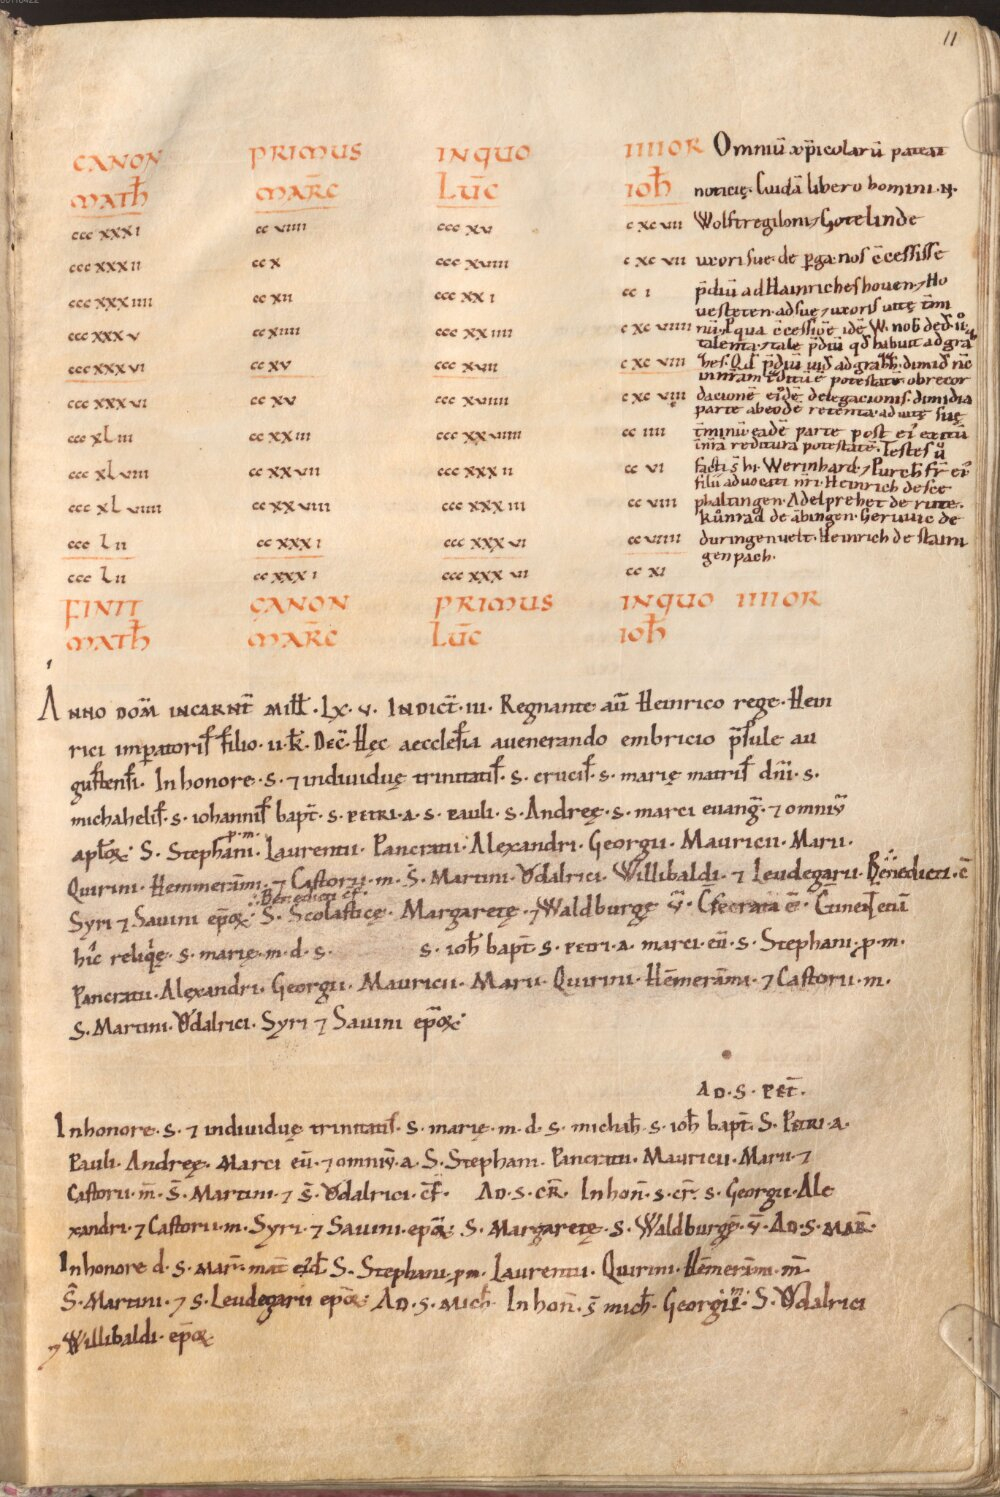 11
CANON PRIMUS INQUO IIIIOR
MATH̄ MAR̄C LUC̄ IOH̄
ccc xxx i cc viiii ccc xv c xc vii
ccc xxx ii cc x ccc xviiii c xc vii
ccc xxx iiii cc xii ccc xx i cc i
ccc xxx v cc xiiii ccc xx iiii c xc viiii
ccc xxx vi cc xv ccc xvii c xc viii
ccc xxx vi cc xv ccc xviiii c xc viii
ccc xl iii cc xx iii ccc xx viiii cc iiii
ccc xl viii cc xx vii ccc xxx ii cc vi
ccc xl viiii cc xx viii ccc xxx iii cc viii
ccc l ii cc xxx i ccc xxx vi cc viiii
ccc l ii cc xxx i ccc xxx vii cc xi
FINIT CANON PRIMUS INQUO IIIIOR
MATH̄ MAR̄C LUC̄ IOH̄
Omniū xp̄icolarū pateat
noticię. Cuidā libero homini. N.
Wolftregiloni ⁊ Gotelinde
uxori sue. de pergæ nos c̄cessisse
p̄diū ad Hainricheshouen ⁊ Ho
uesteten. ad suę ⁊ uxoris uitę t̄mi
nū. P qua c̄cessiōe idē W. nob̄ ded̄
talenta. ⁊ tale p̄diū qd̄ habuit ad gra
bes. Qd̄ p̄diū uid̄ ad grabh̄. dimid̄ nc̄
in nr̄am potestatē. obrecor
dacionē eidē delegacionis. dimidia
parte ab eodē retenta. ad uitę suę
t̄minū. eadē parte post ei exitū
in nr̄a reditura potestatē. Testes
facti s̄ hi. Werinhard. ⁊ Purch̄ fr̄ ei
filii aduocati nr̄i. Heinrich de sce
phaltingen. Adelpreht de rute.
kůnrad de abingen. Geruuic de
duringenuelt. Heinrich de stain
gen pach.
ANNO DOM̄ INCARNT̄ MILL̄. LX. V. INDICT̄. III. Regnante aū Heinrico rege. Hein
rici imperatoris filio. II. K̄. DEC̄. Hęc aecclesia auenerando embricio p̄sule au
gustensi. In honore. s. ⁊ indiuiduę trinitatis. s. crucis. s. marię matris dn̄i. s.
michahelis. s. iohannis bapt̄. s. PETRI. A. s. pauli. s. Andreę. s. marci euanḡ. ⁊ omniū
aplōꝝ. S. Stephani. p. m. Laurentii. Pancratii. Alexandri. Georgii. Mauricii. Marii.
Quirini. Hemmerāmi. ⁊ Castorii. m. S. Martini. Ǒdalrici. Willibaldi. ⁊ Leudegarii. Benedicti. c̄
Syri ⁊ Sauini ep̄oꝝ. Benedicti S. Scolasticę. Margaretę. ⁊ Waldburgę v̄. C̄secrata ē.
hic reliq̄ę. s. marię. m. d. s. s. ioh̄ bapt̄. s. PETRI. a. marci. eū. s. Stephani. p. m.
Pancratii. Alexandri. Georgii. Mauricii. Marii. Quirini. Hēmerāmi. ⁊ Castorii. m.
S. Martini. Ǒdalrici. Syri ⁊ Sauini ep̄oꝝ.
AD. S. PET̄.
In honore. s. ⁊ indiuiduę trinitatis. s. marię. m. d. s. michah̄. s. ioh̄ bapt̄. S. PETRI. a.
Pauli. Andreę. Marci eū. ⁊ omniū. a. S. Stephani. Pancratii. Mauricii. Marii. ⁊
Castorii. m̄. S̄. Martini. ⁊ S̄. Ǒdalrici. cf̄. AD. S. CR̄. In hon̄. s. cr̄. s. Georgii. Ale
xandri. ⁊ Castorii. m. Syri. ⁊ Sauini. ep̄oꝝ. S. Margaretę. s. Waldburgę. v̄. AD. S. MAR̄.
In honore d. s. mar̄. mat̄ S. Stephani. p. m. Laurentii. Quirini. Hēmerāmi. m̄.
S̄. Martini. ⁊ s. Leudegarii ep̄oꝝ. AD. S. MICH̄. In hon̄. s̄ mich̄. Georgii. m̄. S. Ǒdalrici
⁊ Willibaldi. ep̄oꝝ.